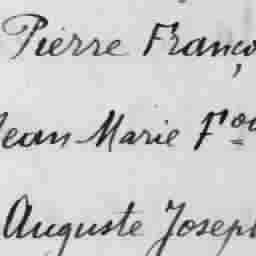 Pierre Franço
Jean Marie F^oi
Auguste Joseph